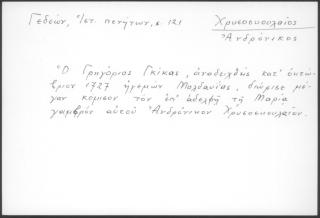 Γεδεών, Ἱστ. πενήτων, σ. 121
Χρυσοσκουλαῖος
Ἀνδρόνικος
Ὁ Γρηγόριος Γκίκας, ἀναδειχθεὶς κατ' ὀκτώ-
βριον 1727 ἡγεμὼν Μολδαυίας, διώρισε μέ-
γαν κόμισον τὸν ἐπ' ἀδελφῇ τῇ Μαρίᾳ
γαμβρὸν αὐτοῦ Ἀνδρόνικον Χρυσοσκουλαῖον.